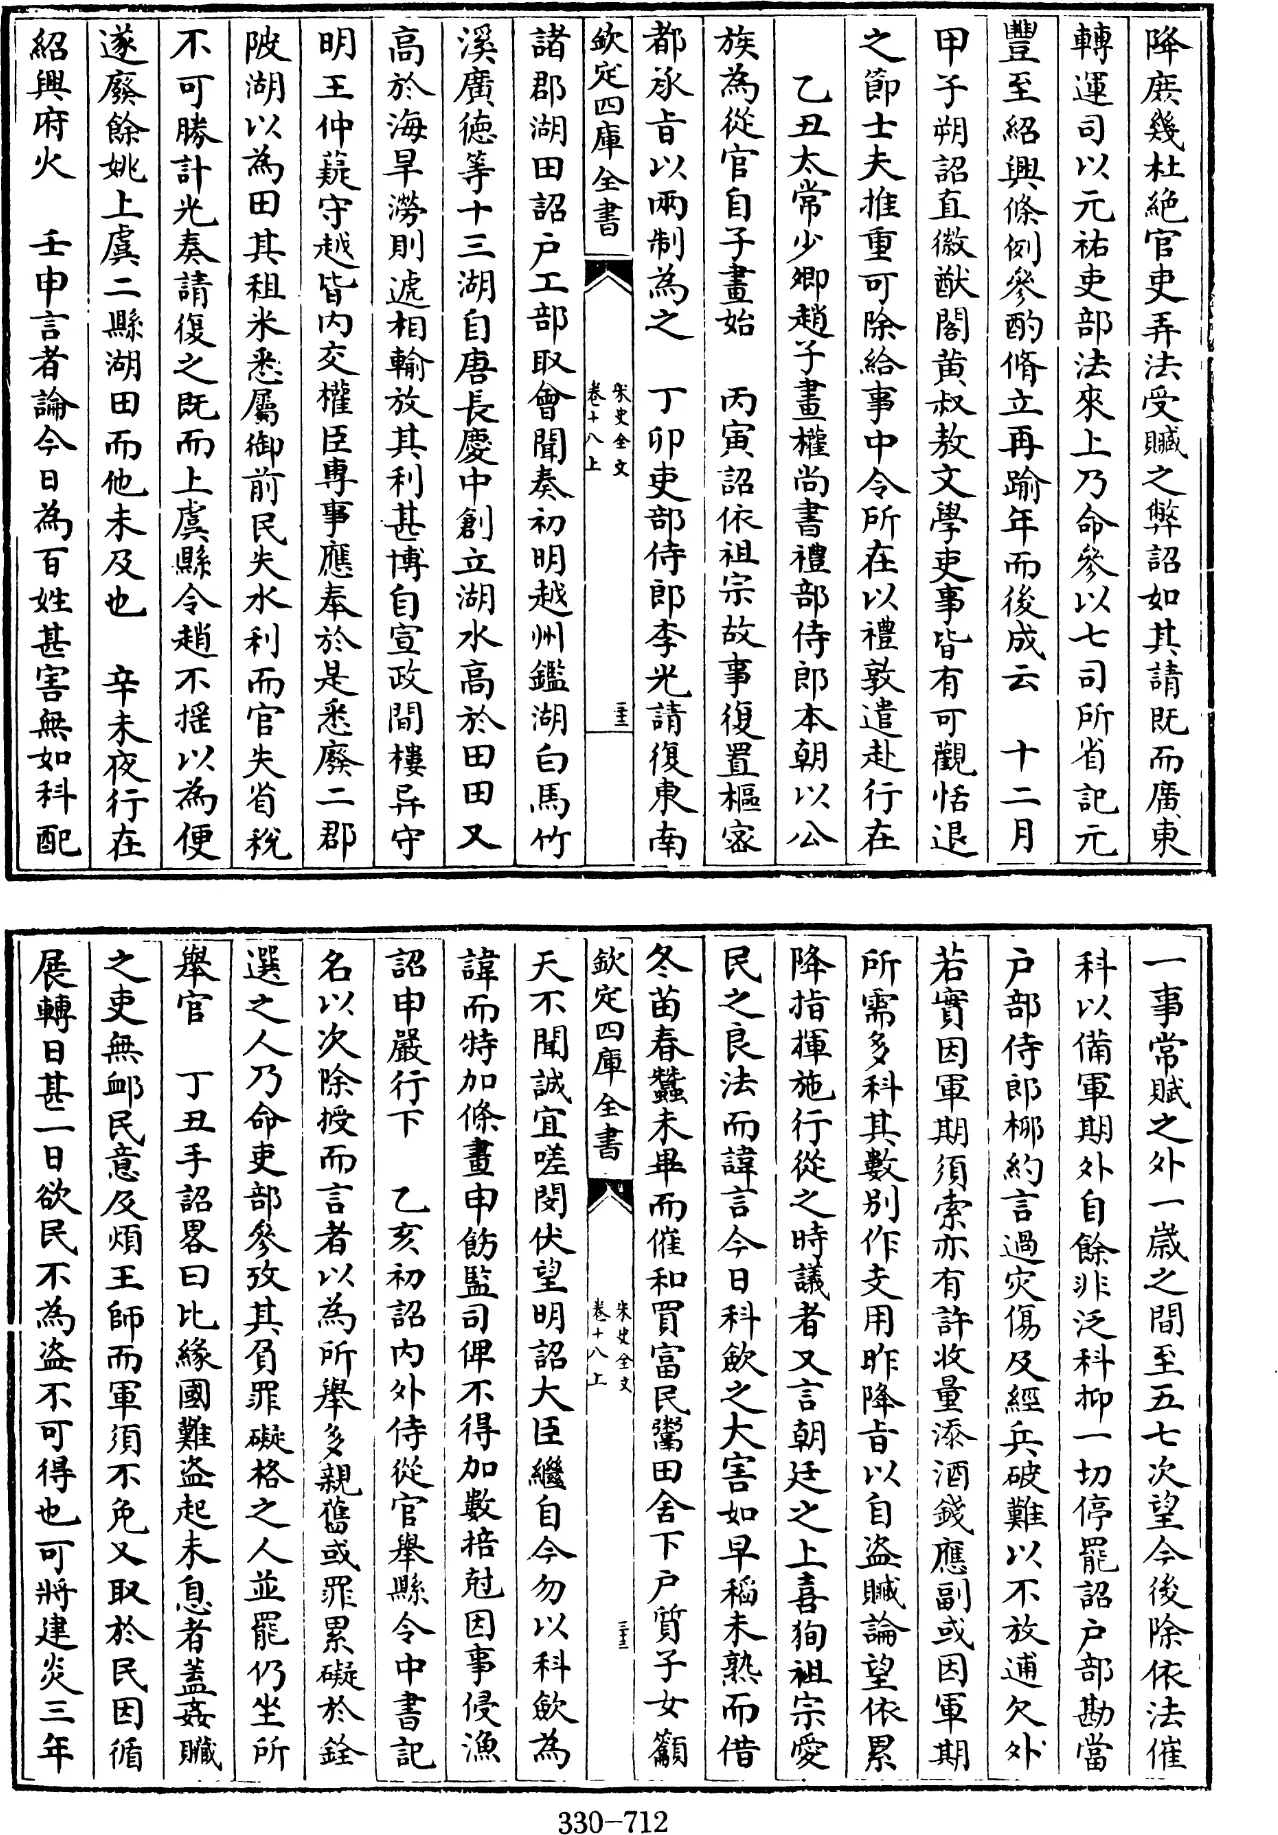 降庶幾杜絶官吏弄法受贓之弊詔如其請既而廣東
轉運司以元祐吏部法來上乃命參以七司所省記元
豐至紹興條例參酌脩立再踰年而後成云　十二月
甲子朔詔直徽猷閣黄叔敖文學吏事皆有可觀恬退
之節士夫推重可除給事中令所在以禮敦遣赴行在
乙丑太常少卿趙子畫權尚書禮部侍郎本朝以公
族為從官自子畫始　丙寅詔依祖宗故事復置樞宻
都承旨以兩制為之　丁卯吏部侍郎李光請復東南
欽定四庫全書
宋史全文
卷十八上
三十三
諸郡湖田詔户工部取㑹聞奏初明越州鑑湖白馬竹
溪廣德等十三湖自唐長慶中創立湖水高於田田又
高於海旱澇則遞相輸放其利甚博自宣政間樓异守
明王仲薿守越皆内交權臣專事應奉於是悉廢二郡
陂湖以為田其租米悉屬御前民失水利而官失省税
不可勝計光奏請復之既而上虞縣令趙不揺以為便
遂廢餘姚上虞二縣湖田而他未及也　辛未夜行在
紹興府火　壬申言者論今日為百姓甚害無如科配
一事常賦之外一歳之間至五七次望今後除依法催
科以備軍期外自餘非泛科抑一切停罷詔户部勘當
户部侍郎柳約言過灾傷及經兵破難以不放逋欠外
若實因軍期須索亦有許收量添酒錢應副或因軍期
所需多科其數别作支用昨降旨以自盜贓論望依累
降指揮施行從之時議者又言朝廷之上喜狥祖宗愛
民之良法而諱言今日科歛之大害如早稻未熟而借
冬苗春蠶未畢而催和買富民鬻田舍下户質子女籲
欽定四庫全書
宋史全文
卷十八上
三十三
天不聞誠宜嗟閔伏望明詔大臣繼自今勿以科歛為
諱而特加條畫申飭監司俾不得加數掊尅因事侵漁
詔申嚴行下　乙亥初詔内外侍從官舉縣令中書記
名以次除授而言者以為所舉多親舊或罪累礙於銓
選之人乃命吏部參攷其負罪礙格之人並罷仍坐所
舉官　丁丑手詔畧曰比緣國難盗起未息者盖姦贓
之吏無䘏民意及煩王師而軍須不免又取於民因循
展轉日甚一日欲民不為盗不可得也可將建炎三年
330-712